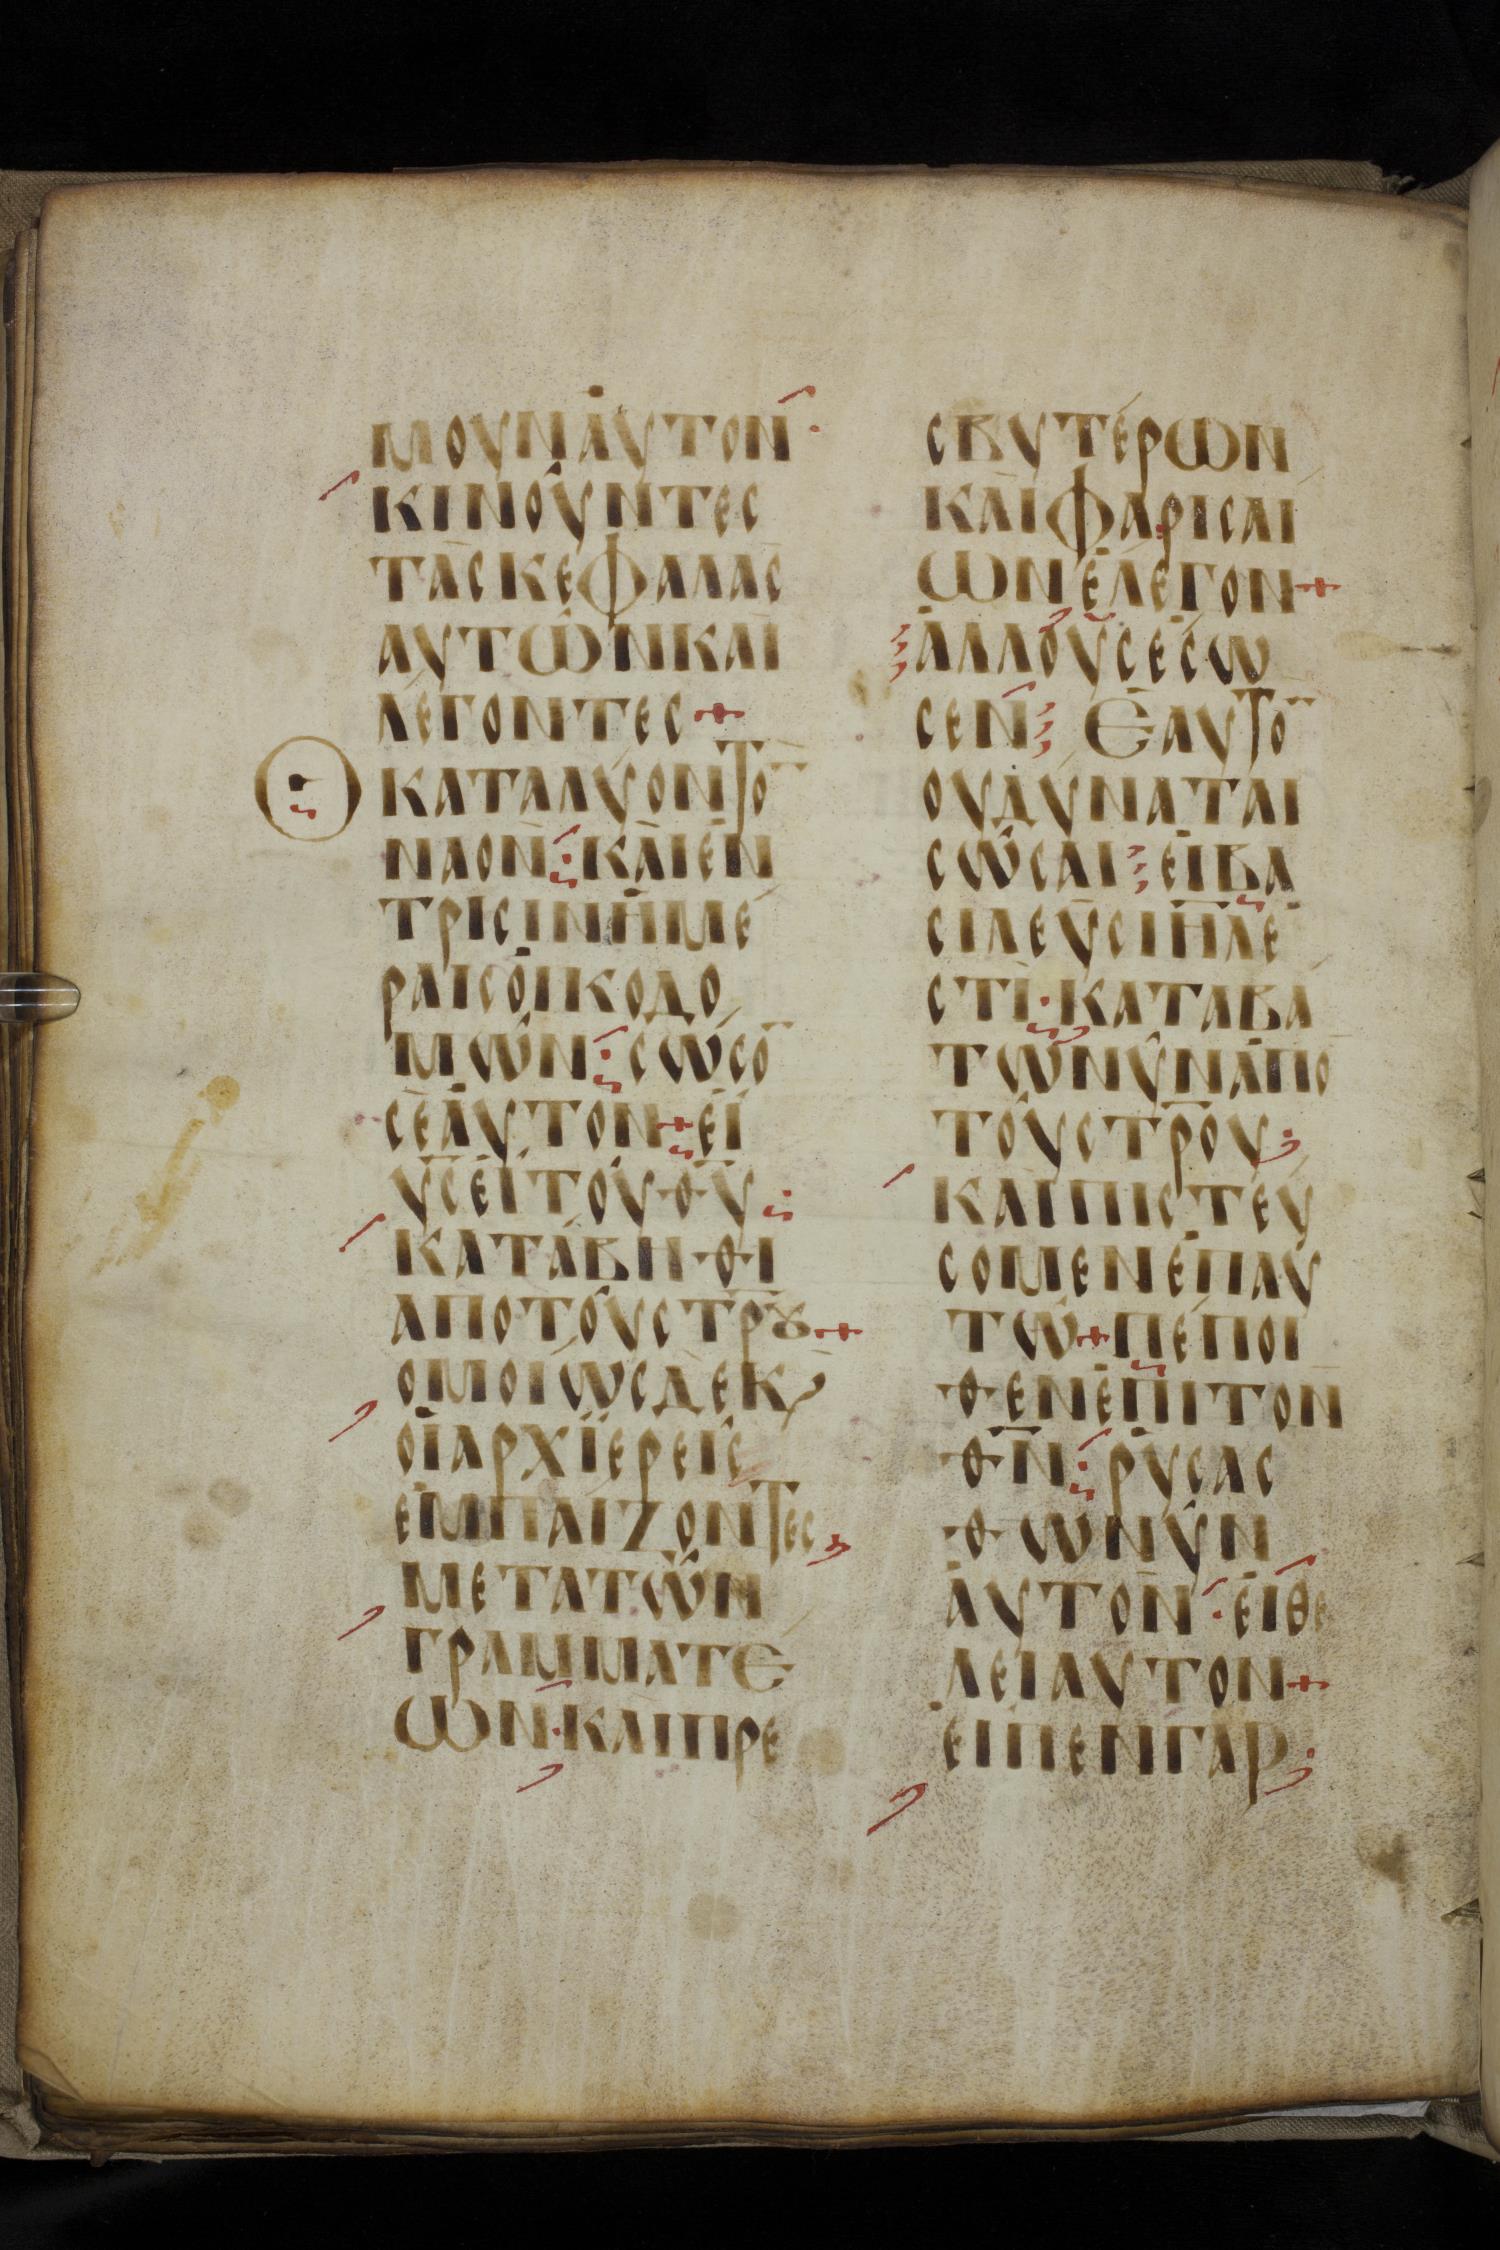 ΜΟΥΝ ΑΥΤΟΝ
ΚΙΝΟΥΝΤΕС
ΤΑС ΚΕΦΑΛΑС
ΑΥΤΩΝ ΚΑΙ
ΛΕΓΟΝΤΕС+
Ο ΚΑΤΑΛΥΟΝ ΤΟ̅
ΝΑΟΝ· ΚΑΙ ΕΝ
ΤΡΙСΙΝ ΗΜΕ
ΡΑΙС ΟΙΚΟΔΟ
ΜΩΝ· СΩСΟ̅
СΕΑΥΤΟΝ+ ΕΙ
Υ̅С ΕΙ ΤΟΥ Θ̅Υ̅·
ΚΑΤΑΒΗΘΙ
ΑΠΟ ΤΟΥ СΤ̅Ρ̅Ȣ+
ΟΜΟΙΩС ΔΕ Κϗ
ΟΙ ΑΡΧΪΕΡΕΙС
ΕΜΠΑΙΖΟΝΤΕС
ΜΕΤΑ ΤΩΝ
ΓΡΑΜΜΑΤΕ
ΩΝ· ΚΑΙ ΠΡΕ
СΒΥΤΕΡΩΝ
ΚΑΙ ΦΑΡΙСΑΙ
ΩΝ ΕΛΕΓΟΝ+
ΑΛΛΟΥС ΕСΩ
СΕΝ ΕΑΥΤΟ̅
ΟΥ ΔΥΝΑΤΑΙ
СΩСΑΙ ΕΙ ΒΑ
СΙΛΕΥС Ι̅Η̅Λ̅ Ε
СΤΙ· ΚΑΤΑΒΑ
ΤΩ ΝΥΝ ΑΠΟ
ΤΟΥ СΤ̅Ρ̅ΟΥ·
ΚΑΙ ΠΙСΤΕΥ
СΟΜΕΝ ΕΠ ΑΥ
ΤΩ+ ΠΕΠΟΙ
ΘΕΝ ΕΠΙ ΤΟΝ
Θ̅Ν̅· ΡΥСΑС
ΘΩ ΝΥΝ
ΑΥΤΟΝ· ΕΙ ΘΕ
ΛΕΙ ΑΥΤΟΝ+
ΕΙΠΕΝ ΓΑΡ·